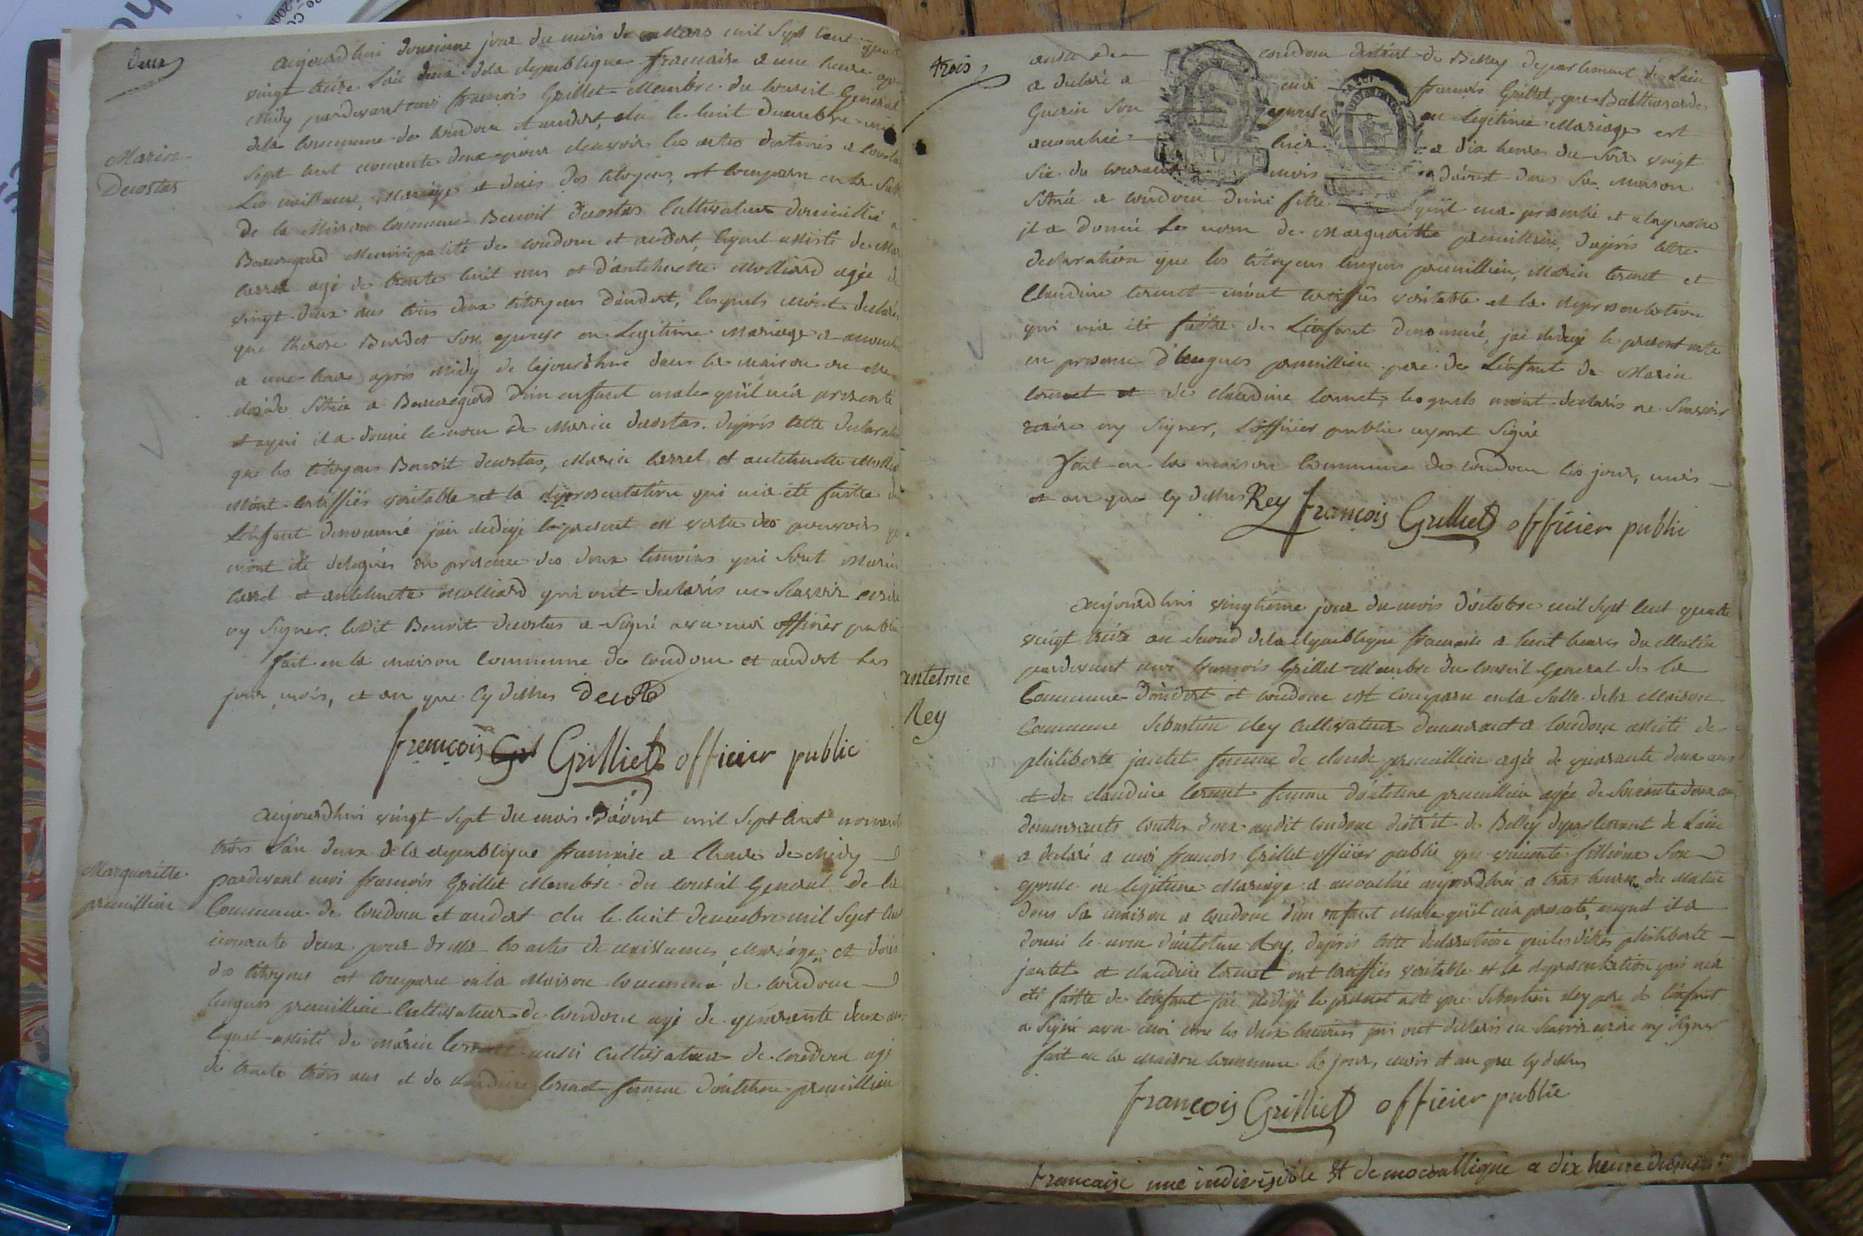 deux
aujourdhui douzieme jour du mois de mars mil sept cent quatre
vingt treize l'an deux de la republique francaise a une heure apres
midy pardevant moi françois Grillet Membre du Conseil General
de la Commune de Condom et andert, élu le huit decembre mil
sept cent nonante deux pour recevoir les actes destinés a constater
Les naissance, Mariages et décès des citoyens, est comparu en la salle
de la Maison commune Benoit decostas Cultivateur domicillié a
Beauregard Municipalité de condom et andert, lequel assisté de Marin
Carrel agé de trente huit ans et d'antelmette Molliard agée de
vingt deux ans tous deux citoyens d'andert, lesquels m'ont declaré
que therese Burdet son epouse en Legitime Mariage a accouché
a une heure après midy de cejourdhui dans la maison
située a Beauregard d'un enfant male qu'il m'a presenté
et aqui il a donné le nom de Marin decostas. d'après cette declaration
que les citoyens Benoit decostas, Marin Carrel et antelmette Molliard
m'ont certiffiés véritable et la représentation qui m'a été faitte de
L'enfant denommé j'ai rédigé le present en vertu des pouvoirs qui
m'ont été delegués en presence des deux temoins qui sont Marin
Carrel et antelmette Molliard qui ont declarés ne Scavoir ecrire
ny signer. ledit Benoit decostas a signé avec moi officier public
fait en la maison Commune de condom et andert Les
jour, mois, et an que cy dessus decosta
françois Grilliet officier public
Marin
Decostas
aujourdhui vingt sept du mois d'aoust mil sept cent nonante
trois l'an deux de la republique francaise a l'heure de midy
pardevant moi françois Grillet Membre du conseil General de la
Commune de condom et andert élu le huit decembre mil sept cent
nonante deux pour dresser les actes de naissances, mariage, et décès
des citoyens est comparu en la Maison commune de condom
hugues premillieu Cultivateur de condom agé de quarante deux ans
lequel assisté de Marin Cornet aussi cultivateur de condom agé
de trente trois ans et de claudine Cornet femme d'antelme premillieu
Margueritte
premillieu
trois
condom district de Belley departement de l'ain
a declaré a moi françois Grillet, que Balthazarde
Guerin Son epouse en legitime Mariage est
accouchée hier a dix heures du Soir vingt
Six du courant mois d'aoust dans Sa Maison
Située a condom d'une fille qu'il m'a presentée et a laquelle
il a donné Le nom de Margueritte premillieu, d'après cette
declaration que les citoyens hugues premillieu, Marin Cornet et
Claudine Cornet m'ont certiffiés véritable et la representation
qui m'a été faitte de L'enfant denommé, j'ai rédigé le present acte
en presence d'hugues premillieu pere de L'enfant de Marin
Cornet et de claudine Cornet, lesquels m'ont declarés ne Scavoir
écrire ny signer, L'officier public ayant signé
fait en la maison Commune de condom les jour, mois
et an que cy dessus Rey françois Grilliet officier public
aujourdhui vingtieme jour du mois d'octobre mil sept cent quatre
vingt treize an second de la republique francaise a huit heures du Matin
pardevant moi françois Grillet Membre du Conseil General de la
Commune d'andert et condom est comparu en la Salle de la Maison
Commune Sebastien Rey cultivateur demeurant a condom assisté de
philiberte jantet femme de claude premillieu agée de quarante deux ans
et de claudine Cornet femme d'antelme premillieu agée de Soixante deux ans
demeurants toutes deux audit condom district de Belley departement de L'ain
a declaré a moi françois Grillet officier public que Son
epouse en legitime Mariage a accouchée aujourdhui a trois heures du Matin
dans Sa maison a condom d'un enfant Male qu'il m'a presenté, auquel il a
donné le nom d'antelme Rey, d'après cette declaration que lesdites philiberte
jantet et claudine Cornet ont certiffiés véritable et la representation qui m'a
été faitte de l'enfant j'ai rédigé le present acte que Sebastien Rey pere de l'enfant
a Signé avec moi non les deux temoins qui ont declarés ne Scavoir ecrire ny Signer
fait en la Maison Commune les jour, mois et an que cy dessus
françois Grilliet officier public
antelme
Rey
francaise une indivisible et democratique a dix heure du matin